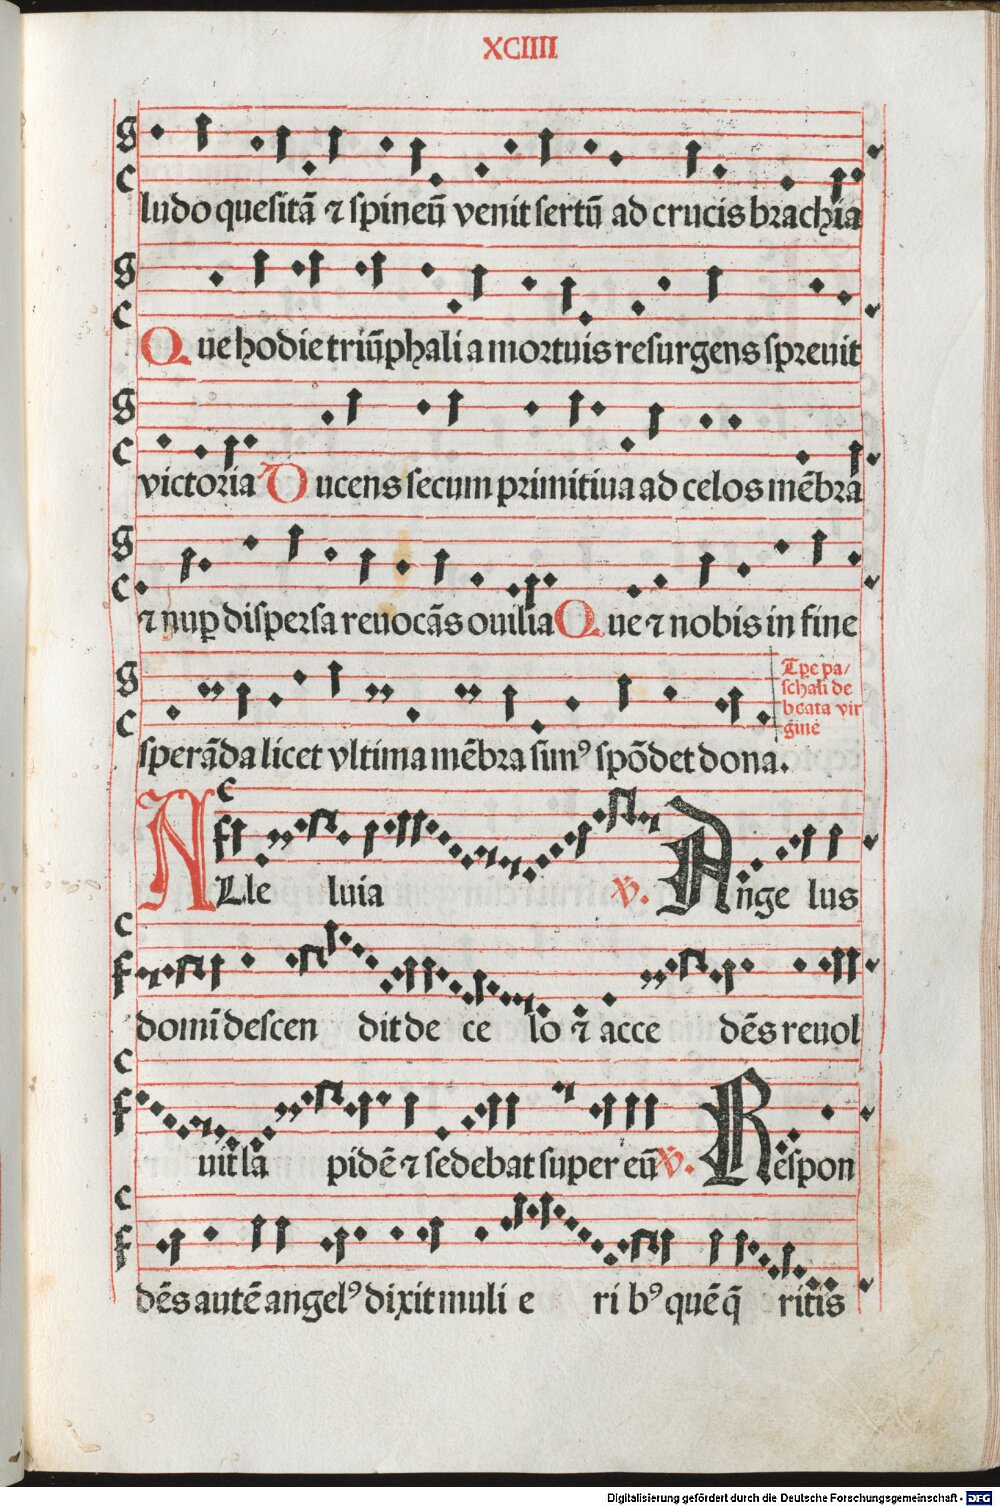 XCIIII
ludo quesitã ⁊ spineũ venit sertũ ad crucis brachia
Que hodie triũphali a mortuis resurgens spreuit
victoria Ducens secum primitiua ad celos mẽbra
⁊ nuꝑ dispersa reuocãs ouilia Que ⁊ nobis in fine
Tꝑe pa/
schali de
beata vir
gine
sperãda licet vltima mẽbra simꝰ spõdet dona.
ALle luia ℣. Ange lus
domĩ descen dit de ce lo ⁊ acce dẽs reuol
uit lã pidẽ ⁊ sedebat super eũ ℣. Respon
dẽs autẽ angelꝰ dixit muli e ri bꝰ quẽ q̃ ritis
Digitalisierung gefördert durch die Deutsche Forschungsgemeinschaft - DFG